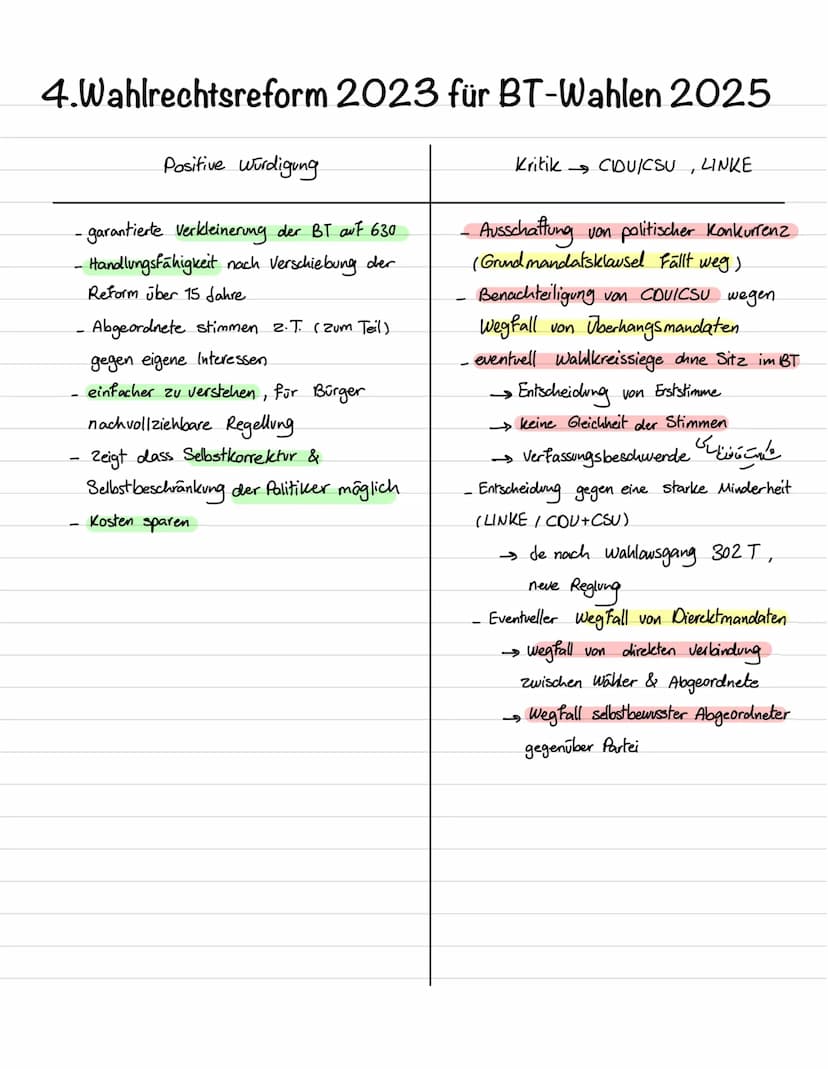 4.Wahlrechtsreform 2023 für BT-Wahlen 2025
Positive Würdigung
- garantierte Verkleinerung der BT auf 630
- Handlungsfähigkeit nach Verschiebung der
Reform über 15 Jahre
- Abgeordnete stimmen z.T. (zum Teil)
gegen eigene Interessen
- einfacher zu verstehen, für Bürger
nachvollziehbare Regellung
- zeigt dass Selbstkorrektur &
Selbstbeschränkung der Politiker möglich
- Kosten sparen
Kritik → CDU/CSU , LINKE
- Ausschaffung von politischer Konkurrenz
(Grundmandatsklausel fällt weg)
- Benachteiligung von CDU/CSU wegen
Wegfall von Überhangsmandaten
- eventuell Wahlkreissiege ohne Sitz im BT
→ Entscheidung von Erststimme
→ keine Gleichheit der Stimmen
→ Verfassungsbeschwerde
- Entscheidung gegen eine starke Minderheit
(LINKE / CDU+CSU)
→ Je nach Wahlausgang 302 T,
neue Reglung
- Eventueller Wegfall von Dierektmandaten
→ Wegfall von direkten Verbindung
zwischen Wähler & Abgeordnete
→ Wegfall selbstbewusster Abgeordneter
gegenüber Partei